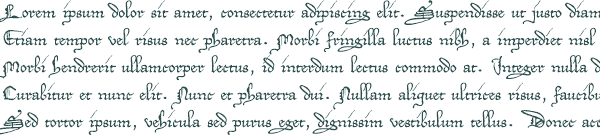 Lorem ipsum dolor sit amet, consectetur adipiscing elit. Suspendisse ut justo diam
Etiam tempor vel risus nec pharetra. Morbi fringilla luctus nibh, a imperdiet nisl
Morbi hendrerit ullamcorper lectus, id interdum lectus commodo at. Integer nulla d
Curabitur et nunc elit. Nunc et pharetra dui. Nullam aliquet ultrices risus, faucibu
Sed tortor ipsum, vehicula sed purus eget, dignissim vestibulum tellus. Donec acc